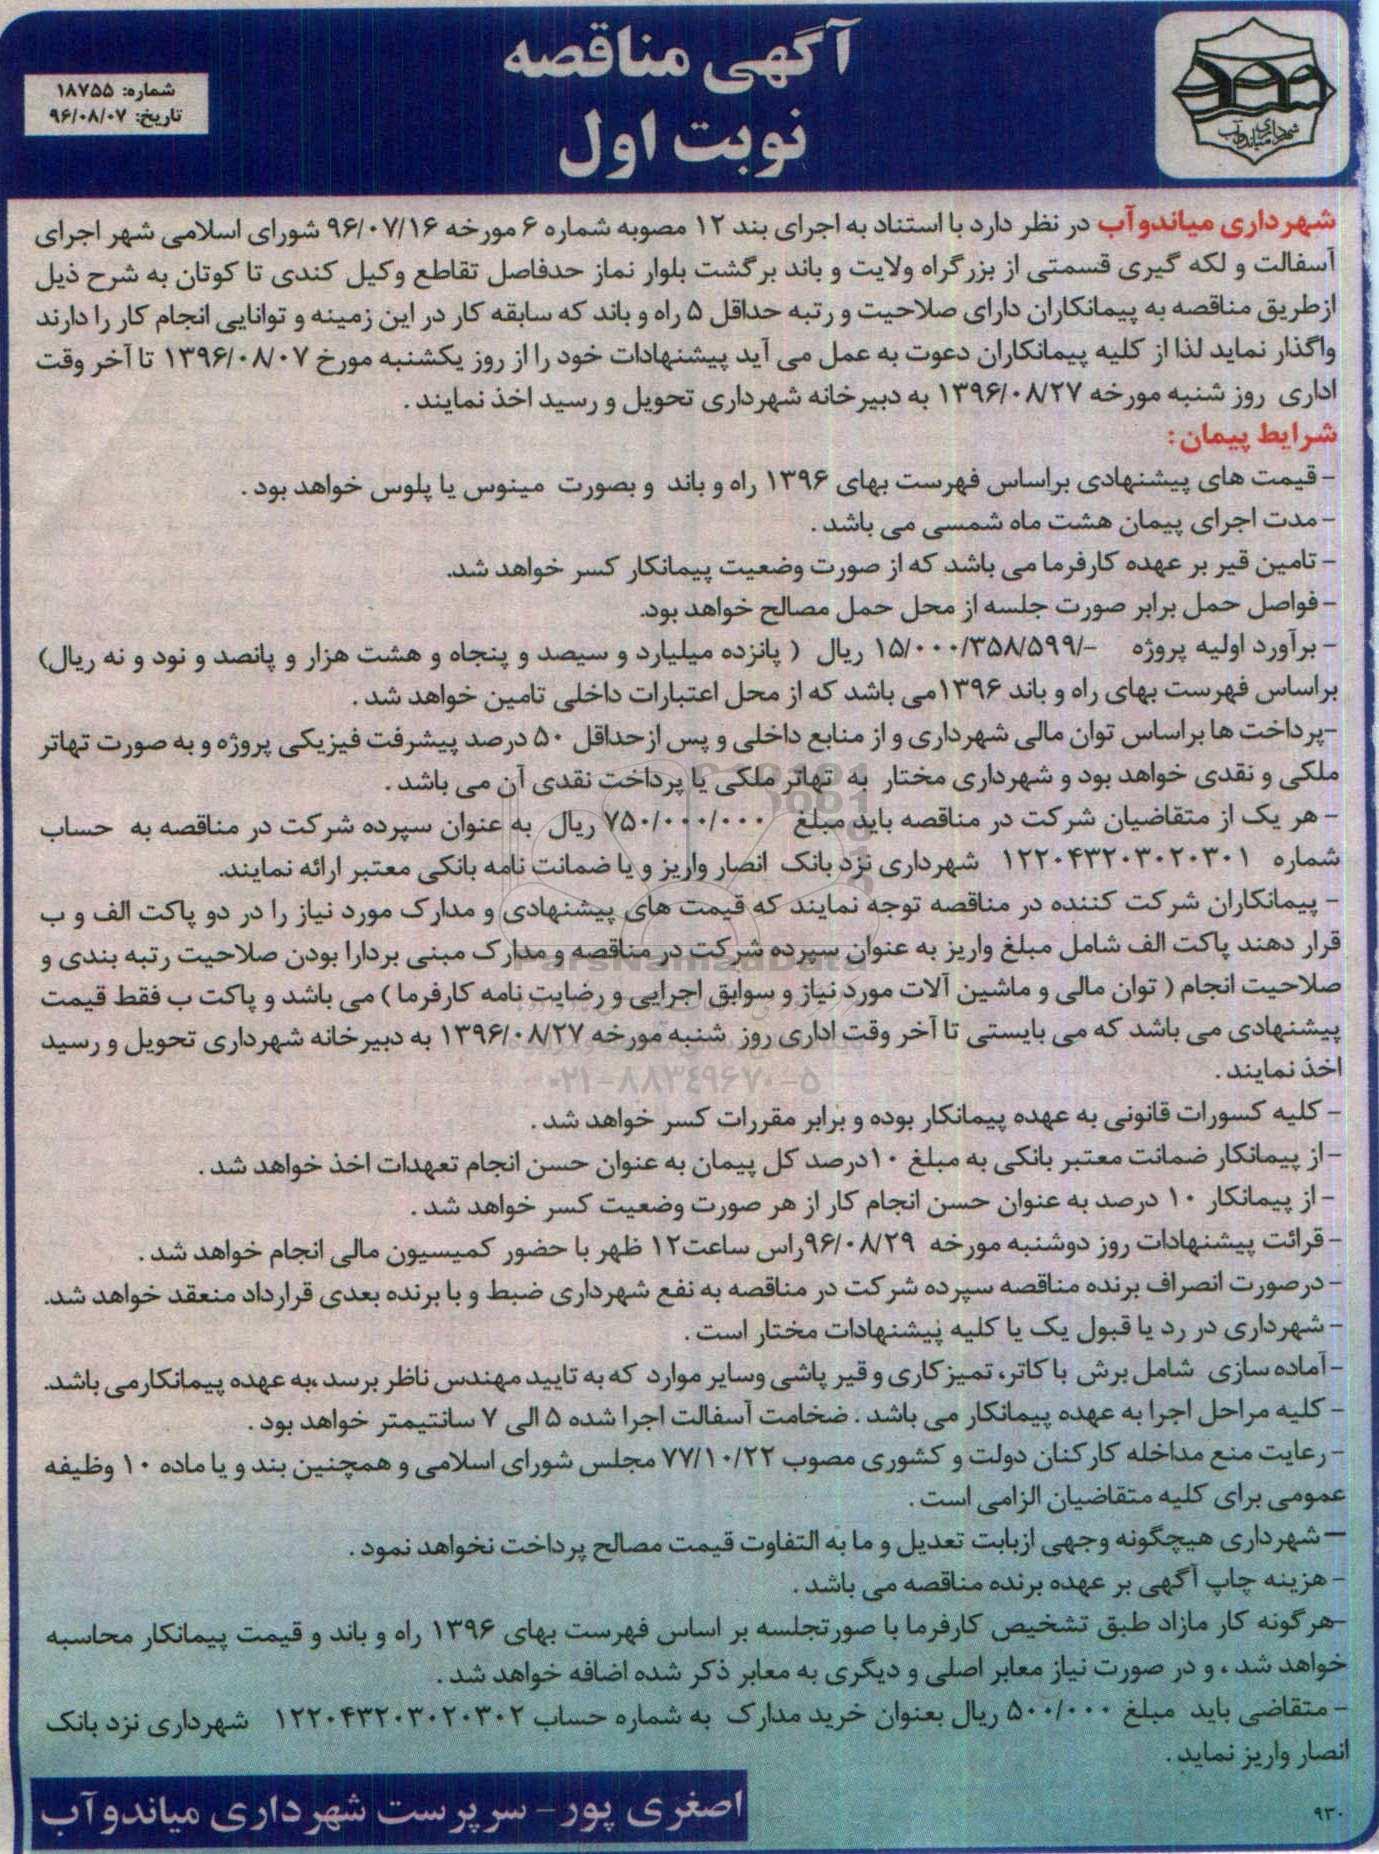 آگهی مناقصه
نوبت اول
شماره: ۱۸۷۵۵
تاریخ: ۹۶/۰۸/۰۷
شهرداری میاندوآب
شهرداری میاندوآب در نظر دارد با استناد به اجرای بند ۱۲ مصوبه شماره ۶ مورخه ۹۶/۰۷/۱۶ شورای اسلامی شهر اجرای
آسفالت و لکه گیری قسمتی از بزرگراه ولایت و باند برگشت بلوار نماز حدفاصل تقاطع وکیل کندی تا کوتان به شرح ذیل
ازطریق مناقصه به پیمانکاران دارای صلاحیت و رتبه حداقل ۵ راه و باند که سابقه کار در این زمینه و توانایی انجام کار را دارند
واگذار نماید لذا از کلیه پیمانکاران دعوت به عمل می آید پیشنهادات خود را از روز یکشنبه مورخ ۱۳۹۶/۰۸/۰۷ تا آخر وقت
اداری روز شنبه مورخه ۱۳۹۶/۰۸/۲۷ به دبیرخانه شهرداری تحویل و رسید اخذ نمایند .
شرایط پیمان :
- قیمت های پیشنهادی براساس فهرست بهای ۱۳۹۶ راه و باند و بصورت مینوس یا پلوس خواهد بود .
- مدت اجرای پیمان هشت ماه شمسی می باشد .
- تامین قیر بر عهده کارفرما می باشد که از صورت وضعیت پیمانکار کسر خواهد شد.
- فواصل حمل برابر صورت جلسه از محل حمل مصالح خواهد بود.
- برآورد اولیه پروژه -/۱۵/۰۰۰/۳۵۸/۵۹۹ ریال ( پانزده میلیارد و سیصد و پنجاه و هشت هزار و پانصد و نود و نه ریال)
براساس فهرست بهای راه و باند ۱۳۹۶می باشد که از محل اعتبارات داخلی تامین خواهد شد .
-پرداخت ها براساس توان مالی شهرداری و از منابع داخلی و پس ازحداقل ۵۰ درصد پیشرفت فیزیکی پروژه و به صورت تهاتر
ملکی و نقدی خواهد بود و شهرداری مختار به تهاتر ملکی یا پرداخت نقدی آن می باشد .
- هر یک از متقاضیان شرکت در مناقصه باید مبلغ ۷۵۰/۰۰۰/۰۰۰ ریال به عنوان سپرده شرکت در مناقصه به حساب
شماره ۱۲۲۰۴۳۲۰۳۰۲۰۳۰۱ شهرداری نزد بانک انصار واریز و یا ضمانت نامه بانکی معتبر ارائه نمایند.
- پیمانکاران شرکت کننده در مناقصه توجه نمایند که قیمت های پیشنهادی و مدارک مورد نیاز را در دو پاکت الف و ب
قرار دهند پاکت الف شامل مبلغ واریز به عنوان سپرده شرکت در مناقصه و مدارک مبنی بردارا بودن صلاحیت رتبه بندی و
صلاحیت انجام ( توان مالی و ماشین آلات مورد نیاز و سوابق اجرایی و رضایت نامه کارفرما ) می باشد و پاکت ب فقط قیمت
پیشنهادی می باشد که می بایستی تا آخر وقت اداری روز شنبه مورخه ۱۳۹۶/۰۸/۲۷ به دبیرخانه شهرداری تحویل و رسید
اخذ نمایند .
ParsNamadData
۰۲۱-۸۸۳۴۹۶۷۰-۵
- کلیه کسورات قانونی به عهده پیمانکار بوده و برابر مقررات کسر خواهد شد .
-از پیمانکار ضمانت معتبر بانکی به مبلغ ۱۰درصد کل پیمان به عنوان حسن انجام تعهدات اخذ خواهد شد .
- از پیمانکار ۱۰ درصد به عنوان حسن انجام کار از هر صورت وضعیت کسر خواهد شد .
- قرائت پیشنهادات روز دوشنبه مورخه ۹۶/۰۸/۲۹راس ساعت۱۲ ظهر با حضور کمیسیون مالی انجام خواهد شد .
- درصورت انصراف برنده مناقصه سپرده شرکت در مناقصه به نفع شهرداری ضبط و با برنده بعدی قرارداد منعقد خواهد شد.
- شهرداری در رد یا قبول یک یا کلیه پیشنهادات مختار است .
-آماده سازی شامل برش با کاتر، تمیزکاری و قیر پاشی وسایر موارد که به تایید مهندس ناظر برسد ،به عهده پیمانکارمی باشد.
- کلیه مراحل اجرا به عهده پیمانکار می باشد . ضخامت آسفالت اجرا شده ۵ الی ۷ سانتیمتر خواهد بود .
- رعایت منع مداخله کارکنان دولت و کشوری مصوب ۷۷/۱۰/۲۲ مجلس شورای اسلامی و همچنین بند و یا ماده ۱۰ وظیفه
عمومی برای کلیه متقاضیان الزامی است .
- شهرداری هیچگونه وجهی ازبابت تعدیل و ما به التفاوت قیمت مصالح پرداخت نخواهد نمود .
- هزینه چاپ آگهی بر عهده برنده مناقصه می باشد .
-هرگونه کار مازاد طبق تشخیص کارفرما با صورتجلسه بر اساس فهرست بهای ۱۳۹۶ راه و باند و قیمت پیمانکار محاسبه
خواهد شد ، و در صورت نیاز معابر اصلی و دیگری به معابر ذکر شده اضافه خواهد شد .
- متقاضی باید مبلغ ۵۰۰/۰۰۰ ریال بعنوان خرید مدارک به شماره حساب ۱۲۲۰۴۳۲۰۳۰۲۰۳۰۲ شهرداری نزد بانک
انصار واریز نماید .
اصغری پور - سرپرست شهرداری میاندوآب
۹۳۰